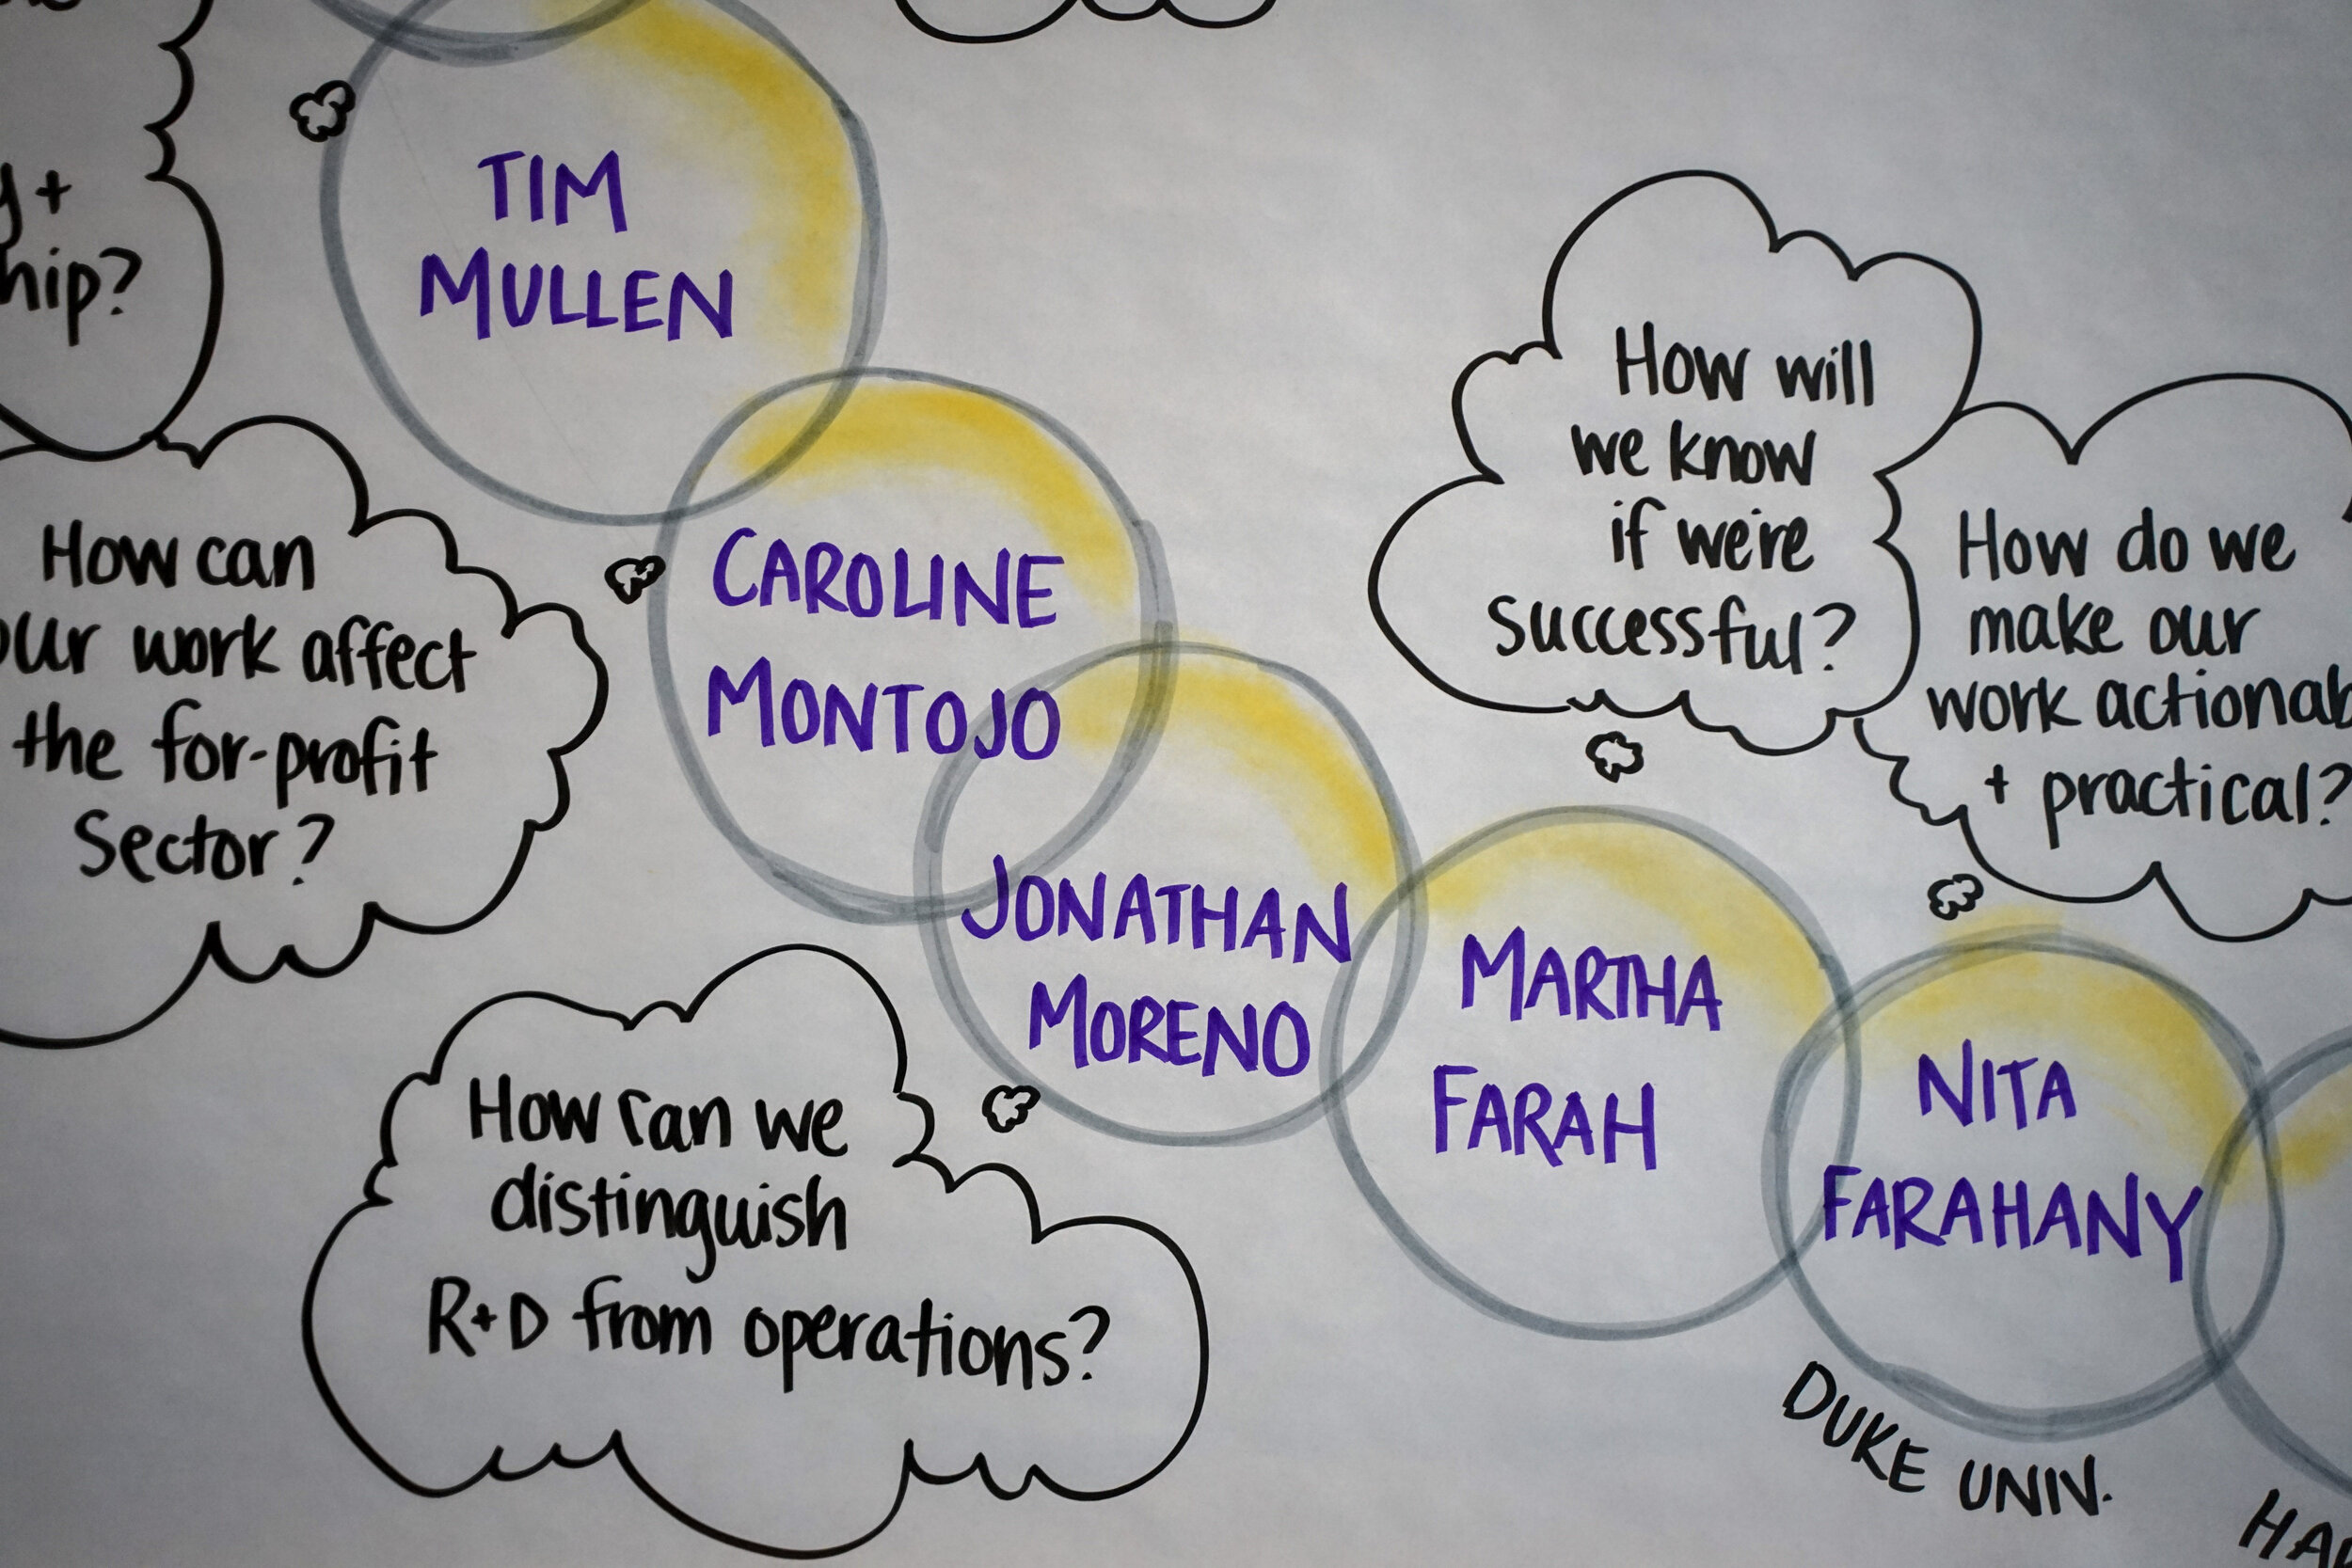 TIM
MULLEN
hip?
How can
our work affect
the for-profit
Sector?
CAROLINE
MONTOJO
How will
we know
if we're
successful?
How do we
make our
work actionab
+ practical?
JONATHAN
MORENO
MARTHA
FARAH
NITA
FARAHANY
How can we
distinguish
R+D from operations?
DUKE UNIV.
HA